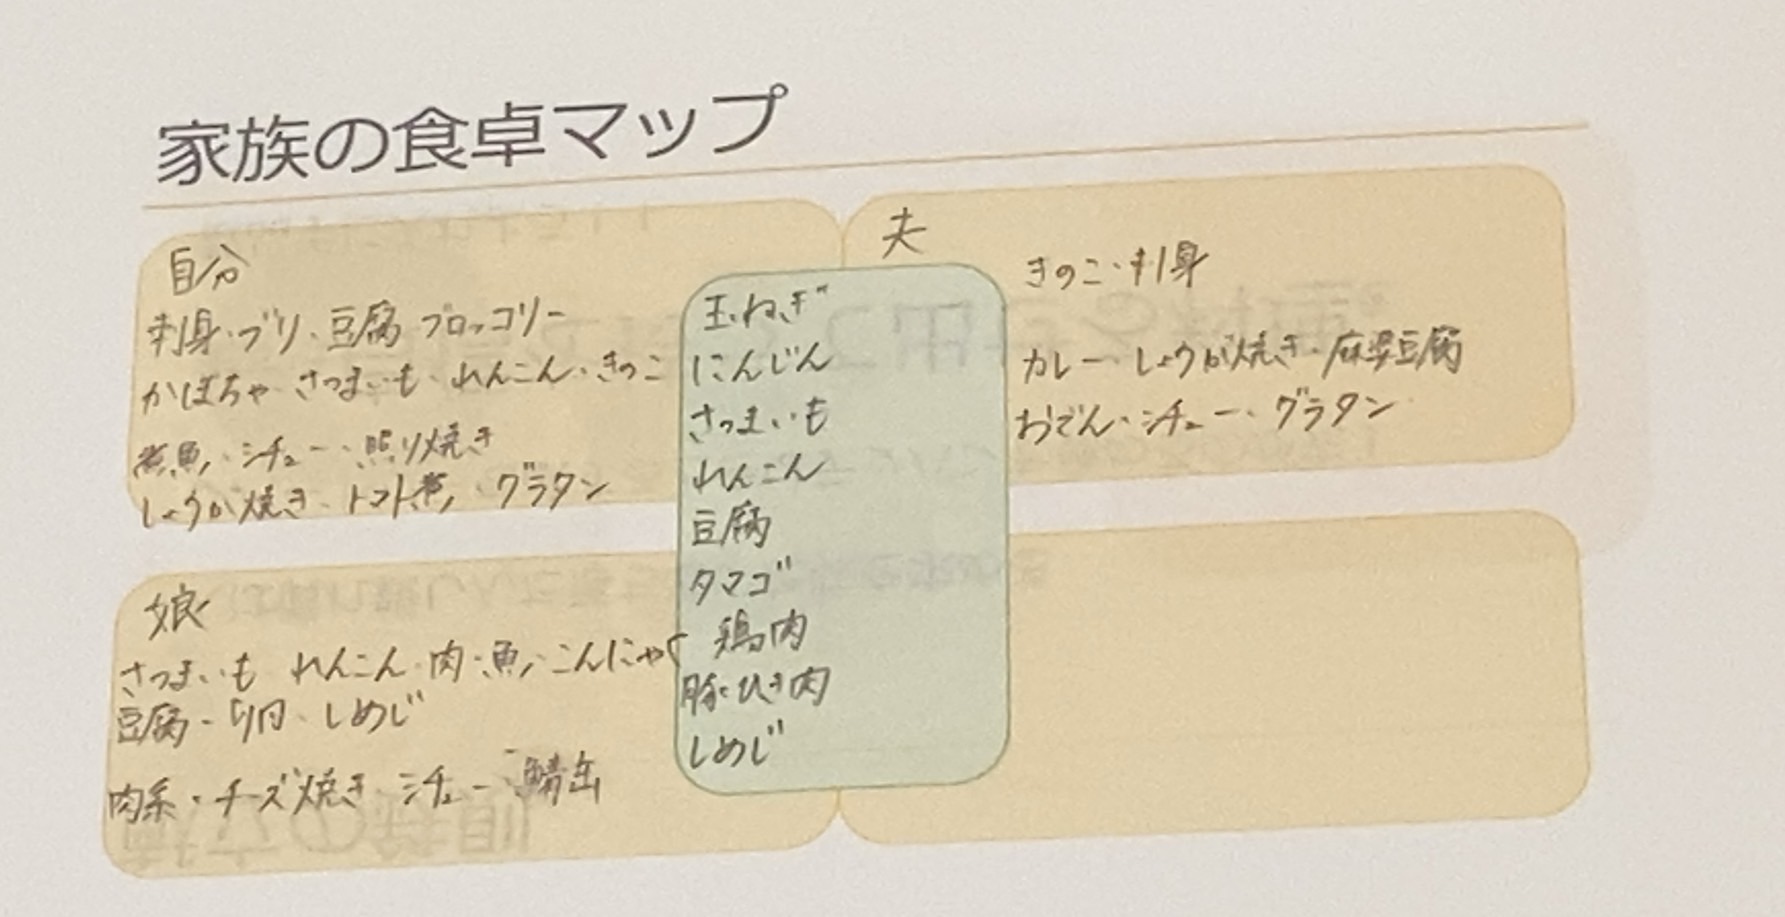 家族の食卓マップ
自分
刺身・ブリ・豆腐 ブロッコリー
かぼちゃ・さつまいも・れんこん・きのこ
煮魚・シチュー・照り焼き
しょうが焼き・トマト煮・グラタン
夫
きのこ・刺身
カレー・しょうが焼き・麻婆豆腐
おでん・シチュー・グラタン
玉ねぎ
にんじん
さつまいも
れんこん
豆腐
タマゴ
鶏肉
豚ひき肉
しめじ
娘
さつまいも れんこん・肉・魚・こんにゃく
豆腐・卵・しめじ
肉系・チーズ焼き・シチュー・鯖缶